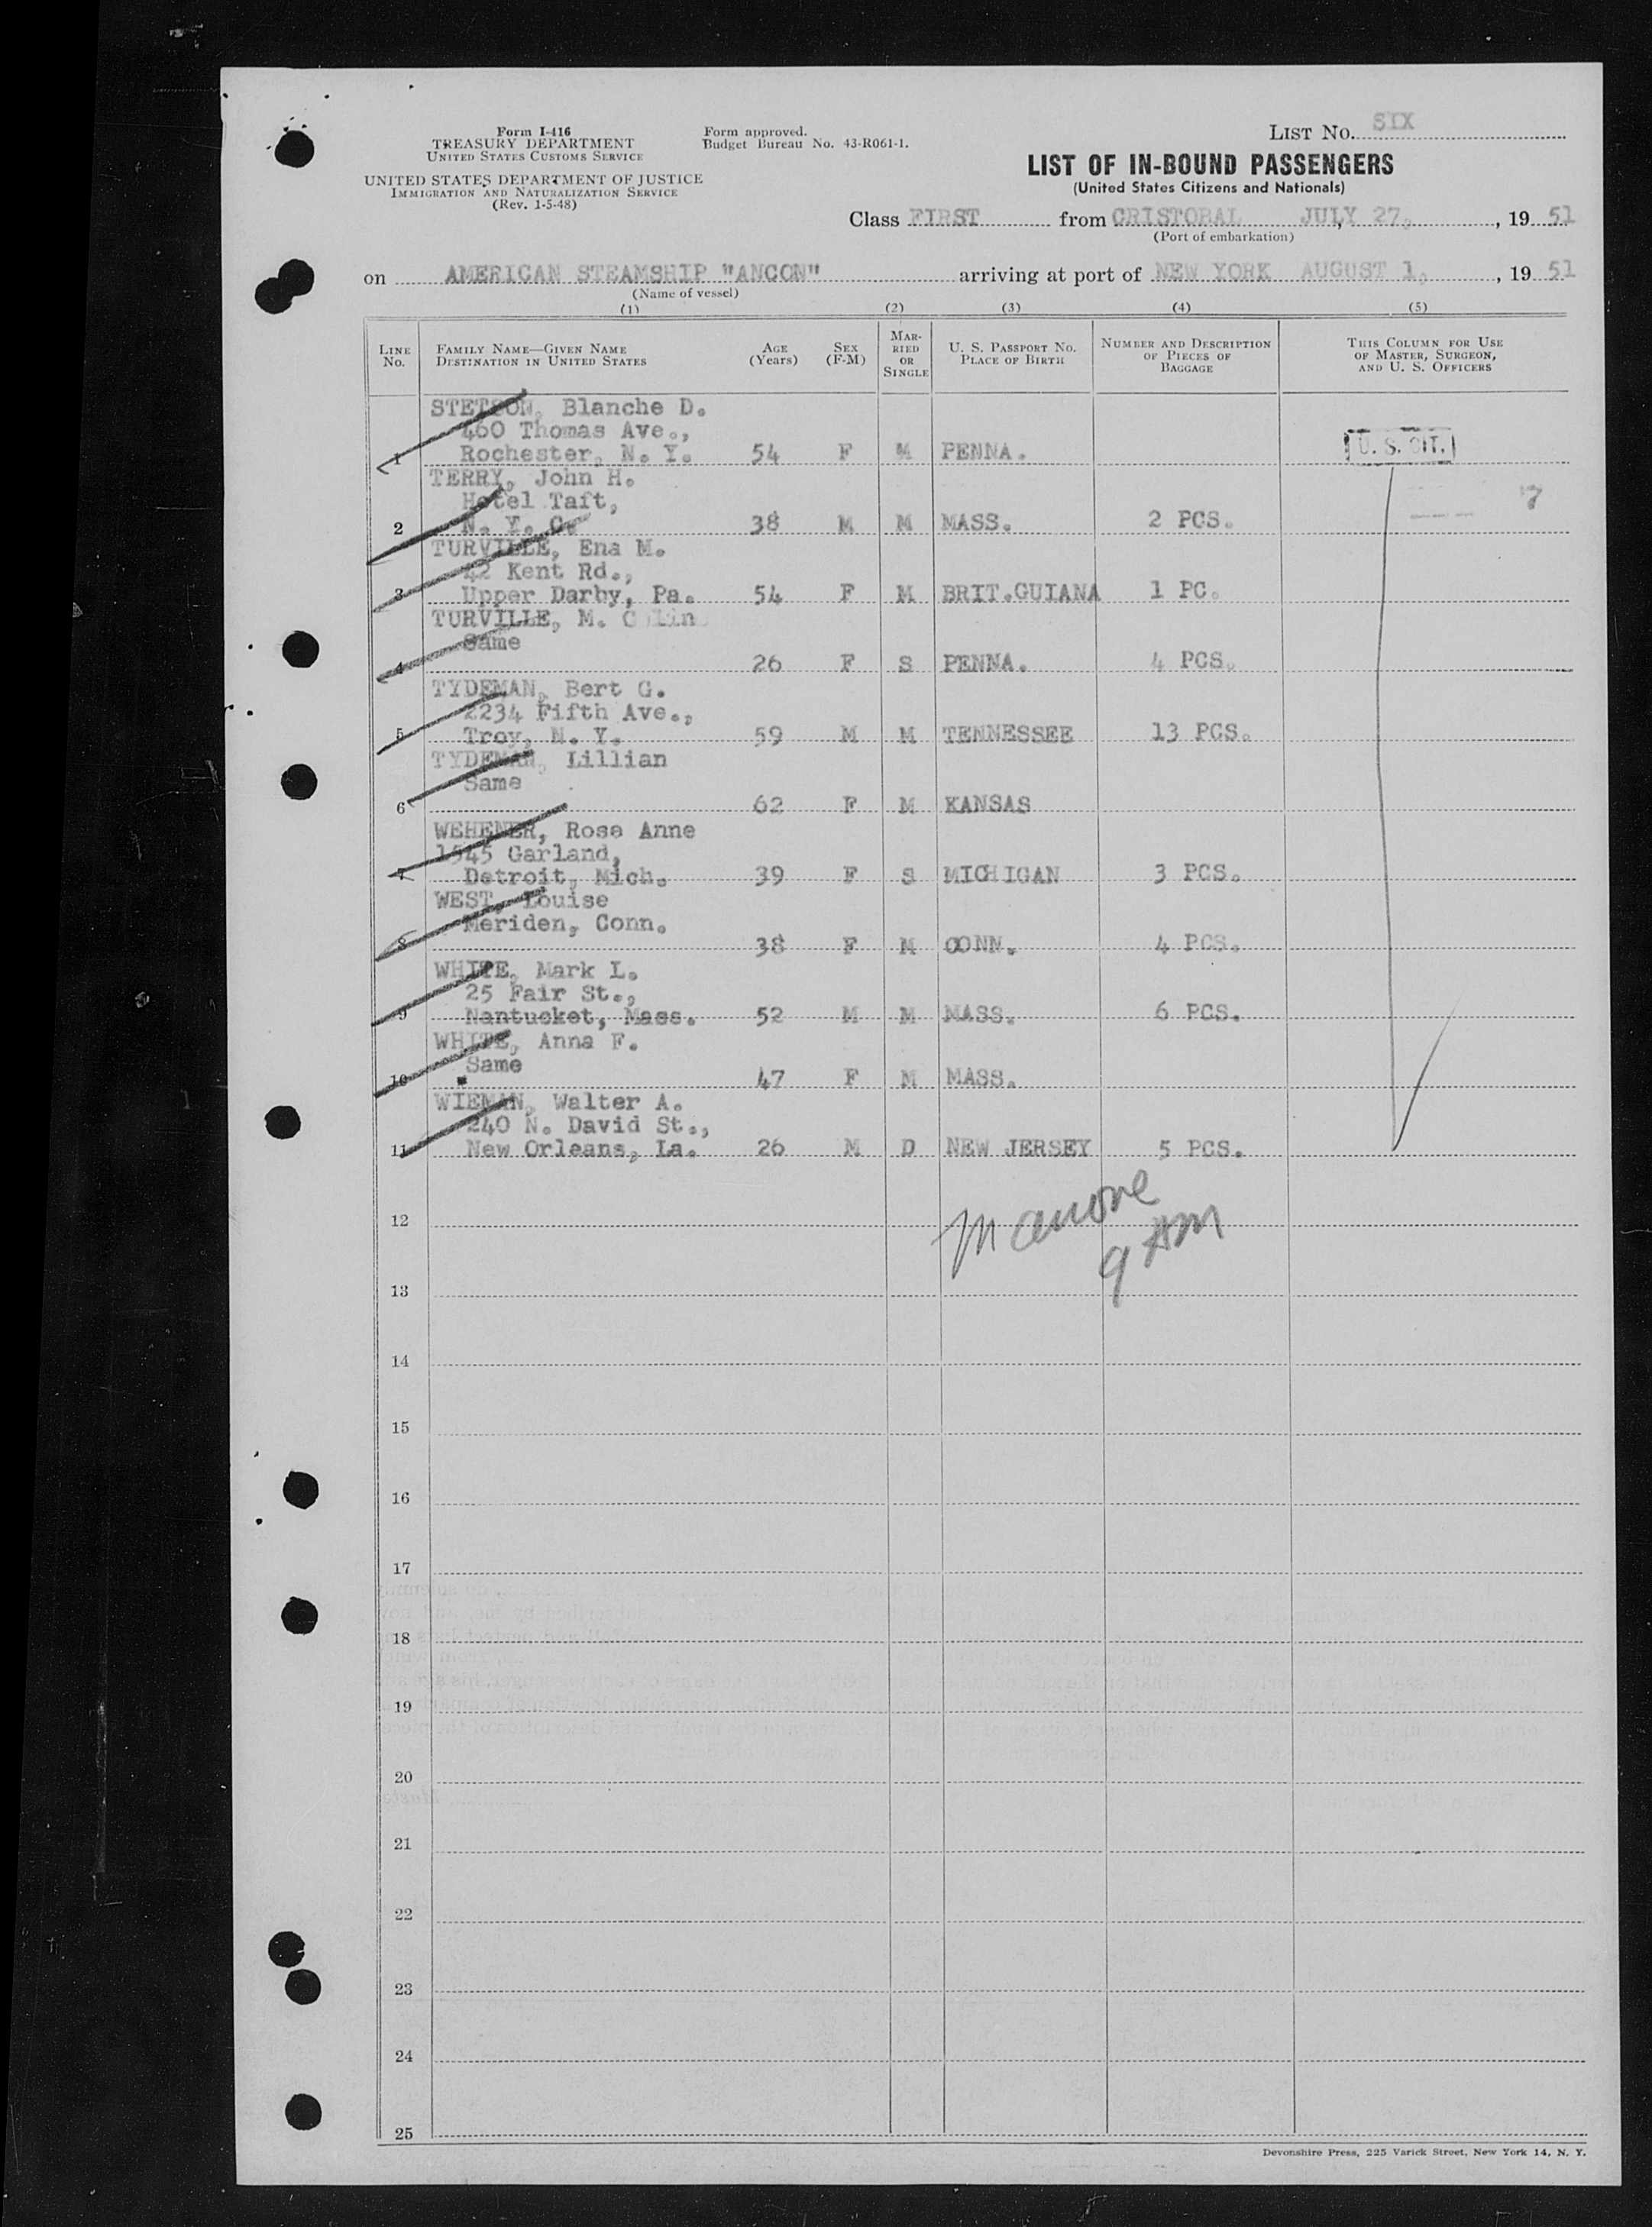 Form I-416
TREASURY DEPARTMENT
UNITED STATES CUSTOMS SERVICE
UNITED STATES DEPARTMENT OF JUSTICE
IMMIGRATION AND NATURALIZATION SERVICE
(Rev. 1-5-48)
Form approved.
Budget Bureau No. 43-R061-1.
LIST NO. SIX
LIST OF IN-BOUND PASSENGERS
(United States Citizens and Nationals)
Class FIRST from CRISTOBAL JULY 27, , 19 51
(Port of embarkation)
on AMERICAN STEAMSHIP "ANCON" arriving at port of NEW YORK AUGUST 1, , 19 51
(Name of vessel)
(1) (2) (3) (4) (5)
LINE NO.
FAMILY NAME—GIVEN NAME
DESTINATION IN UNITED STATES
AGE (Years)
SEX (F-M)
MARRIED OR SINGLE
U. S. PASSPORT NO.
PLACE OF BIRTH
NUMBER AND DESCRIPTION
OF PIECES OF
BAGGAGE
THIS COLUMN FOR USE
OF MASTER, SURGEON,
AND U. S. OFFICERS
STETSON, Blanche D.
460 Thomas Ave.,
1 Rochester, N. Y. 54 F M PENNA. U. S. CIT.
TERRY, John H.
Hotel Taft, 7
2 N. Y. C. 38 M M MASS. 2 PCS.
TURVILLE, Ena M.
42 Kent Rd.,
3 Upper Darby, Pa. 54 F M BRIT.GUIANA 1 PC.
TURVILLE, M.
Same
4 26 F S PENNA. 4 PCS.
TYDEMAN, Bert G.
2234 Fifth Ave.,
5 Troy, N. Y. 59 M M TENNESSEE 13 PCS.
TYDEMAN, Lillian
Same
6 62 F M KANSAS
WEHENER, Rose Anne
1545 Garland,
7 Detroit, Mich. 39 F S MICHIGAN 3 PCS.
WEST, Louise
Meriden, Conn.
8 38 F M CONN. 4 PCS.
WHITE, Mark L.
25 Fair St.,
9 Nantucket, Mass. 52 M M MASS. 6 PCS.
WHITE, Anna F.
Same
10 47 F M MASS.
WIEMAN, Walter A.
240 N. David St.,
11 New Orleans, La. 26 M D NEW JERSEY 5 PCS.
12
9 AM
13
14
15
16
17
18
19
20
21
22
23
24
25
Devonshire Press, 225 Varick Street, New York 14, N. Y.